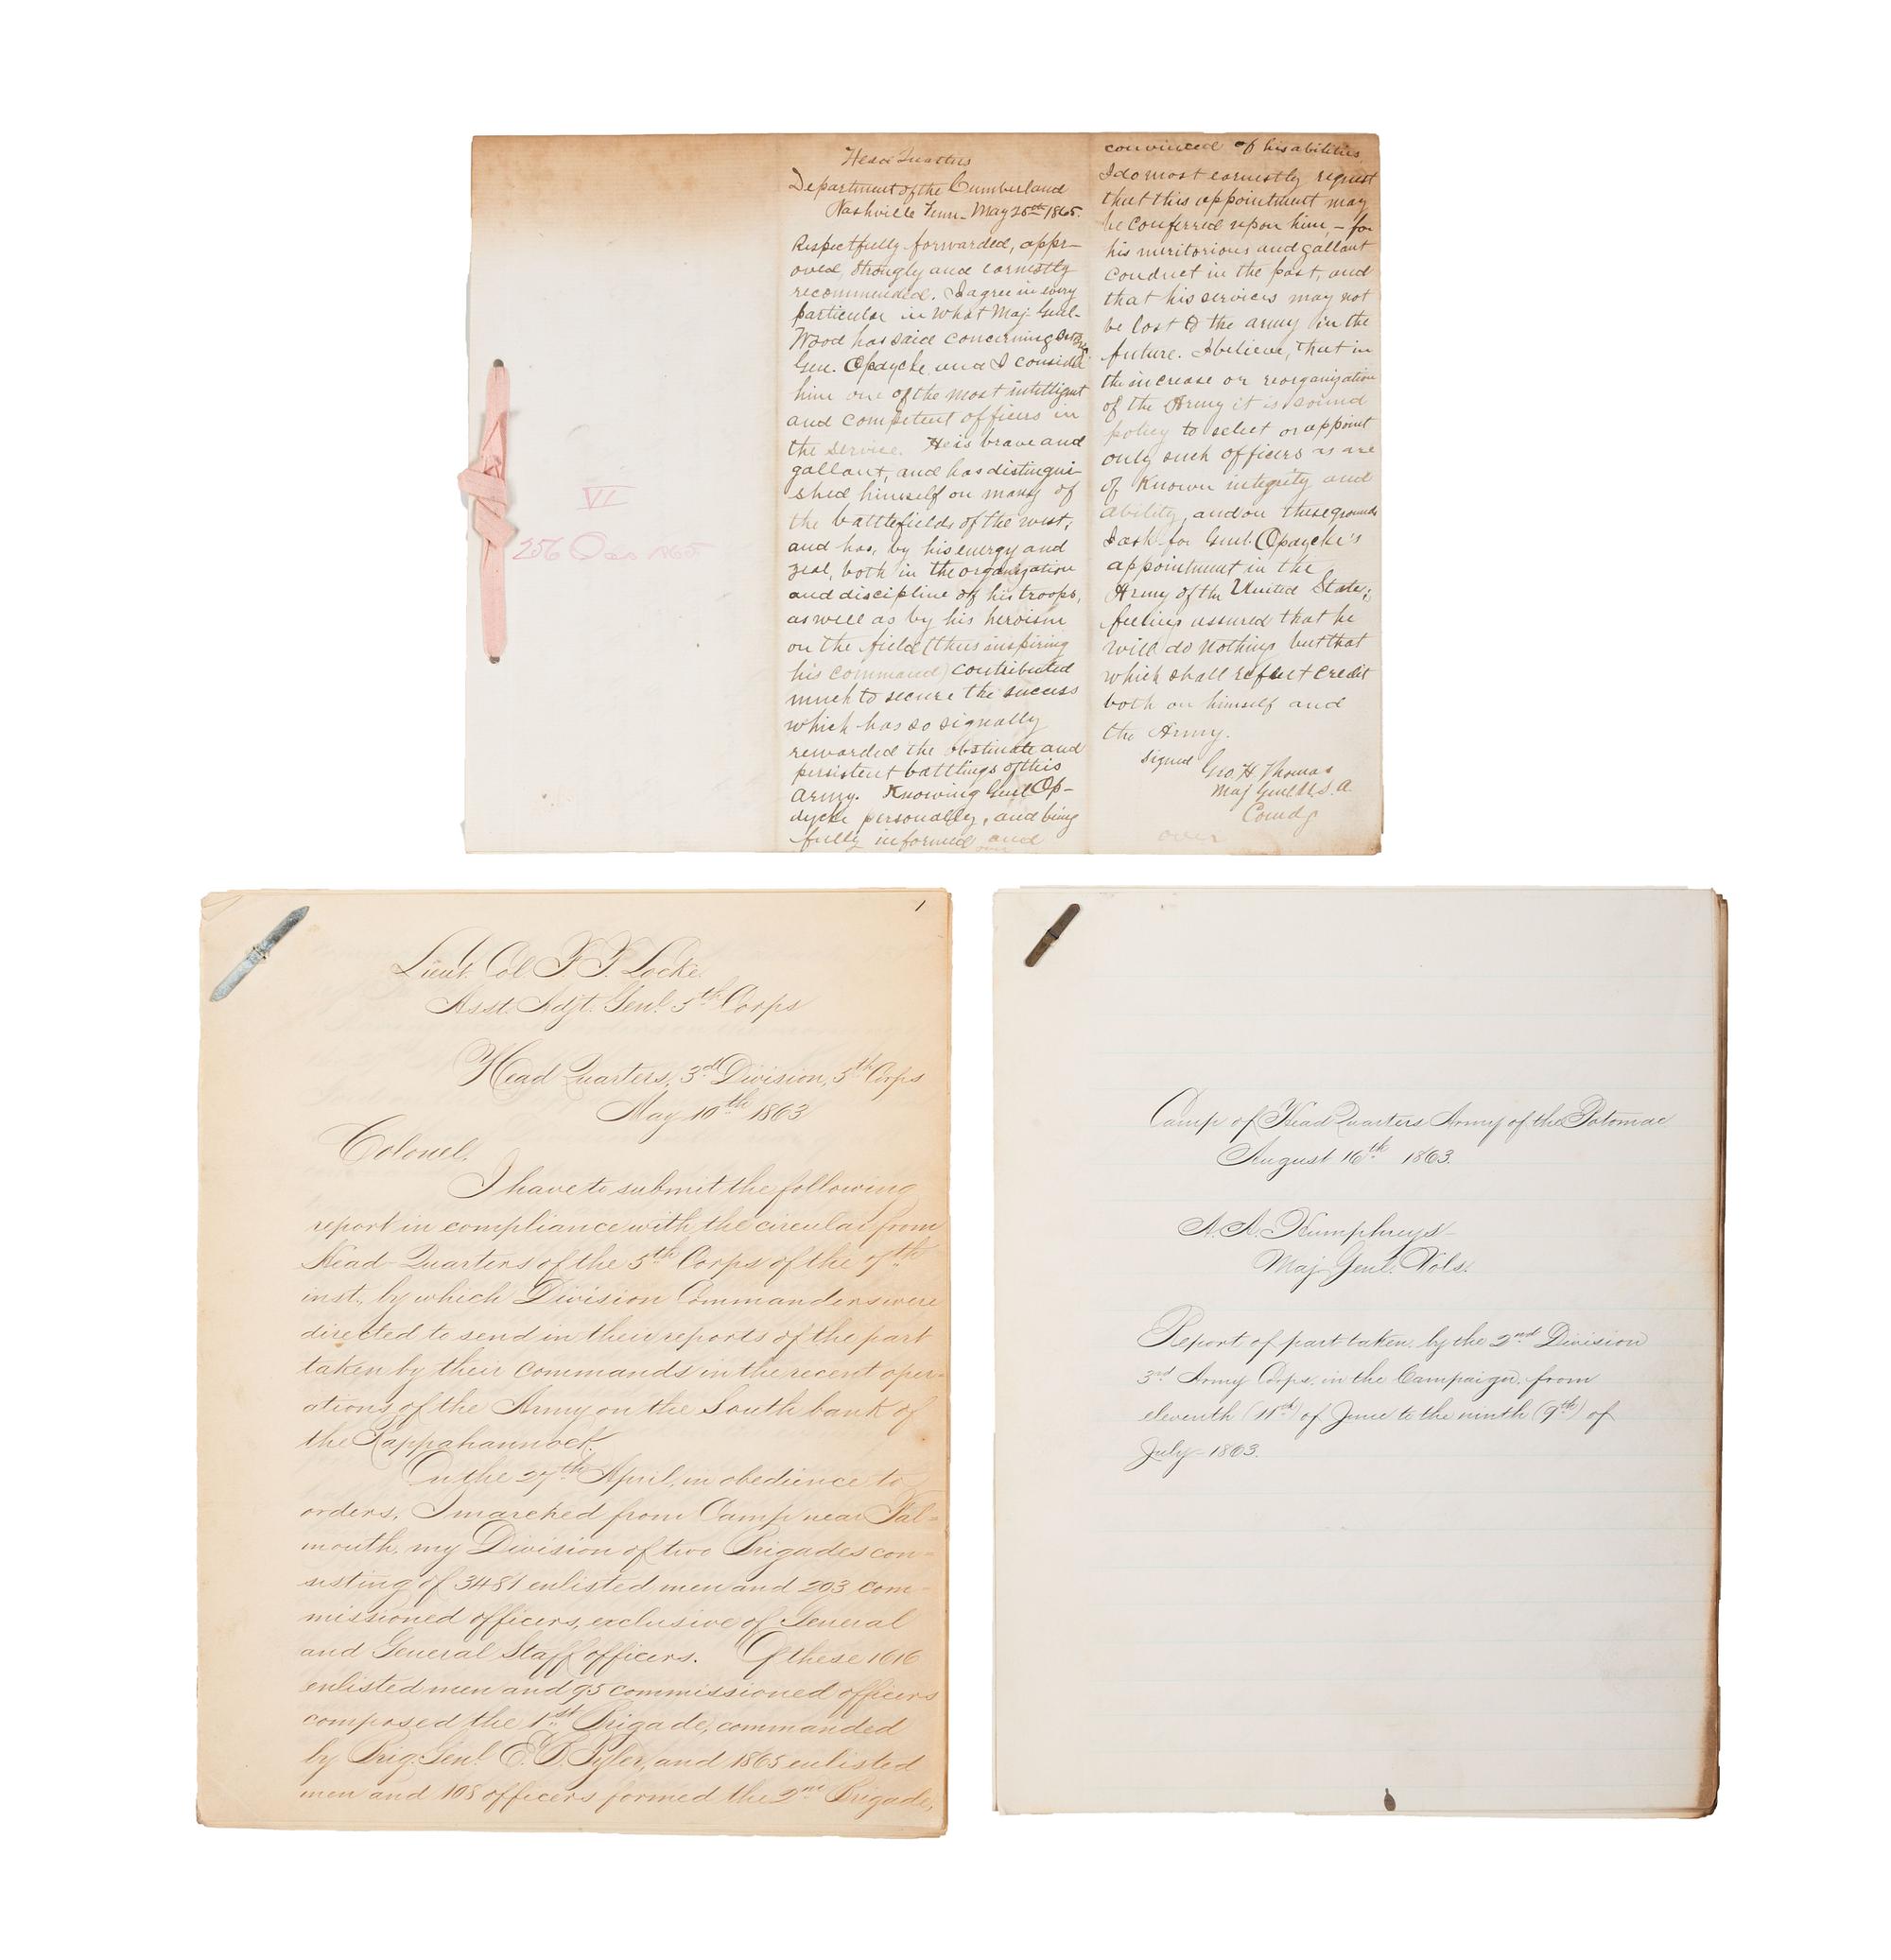 VI
Head Quarters
Department of the Cumberland
Nashville Tenn. May 25th 1865.
Respectfully forwarded, appr-
oved, strongly and earnestly
recommended. I agree in every
particular in what Maj. Genl.
Wood has said concerning
Gen. Opdycke, and I consider
him one of the most intelligent
and competent officers in
the service. He is brave and
gallant, and has distingui-
shed himself on many of
the battlefields of the west;
and has, by his energy and
zeal, both in the organization
and discipline of his troops,
as well as by his heroism
on the field (thus inspiring
his command) contributed
much to secure the success
which has so signally
rewarded the obstinate and
persistent battlings of this
Army. Knowing Genl Op-
dycke personally, and being
fully informed and
convinced of his abilities,
I do most earnestly request
that this appointment may
be conferred upon him, – for
his meritorious and gallant
conduct in the past, and
that his services may not
be lost to the army in the
future. I believe, that in
the increase or reorganization
of the Army it is sound
policy to select or appoint
only such officers as are
of known integrity and
ability, and on these grounds
I ask for Genl. Opdycke's
appointment in the
Army of the United States;
feeling assured that he
will do nothing but that
which shall reflect credit
both on himself and
the Army.
signed Geo. H. Thomas
Maj Genl U.S.A.
Comdg
over
1
Lieut. Col F. T. Locke
Asst. Adjt. Genl. 5th Corps
Head Quarters, 3rd Division, 5th Corps
May 10th 1863
Colonel.
I have to submit the following
report in compliance with the circular from
Head Quarters of the 5th Corps of the 7th
inst., by which Division Commanders were
directed to send in their reports of the part
taken by their commands in the recent oper-
ations of the Army on the South bank of
the Rappahannock.
On the 27th April, in obedience to
orders, I marched from Camp near Fal-
mouth, my Division of two Brigades con-
sisting of 3481 enlisted men and 203 com-
missioned officers, exclusive of General
and General Staff officers. Of these 1616
enlisted men and 95 commissioned officers
composed the 1st Brigade, commanded
by Brig. Genl. E. B. Tyler, and 1865 enlisted
men and 108 officers formed the 2nd Brigade,
Camp of Head Quarters Army of the Potomac
August 16th 1863.
A. A. Humphreys
Maj. Genl. Vols.
Report of part taken by the 2nd Division
3rd Army Corps, in the Campaign, from
eleventh (11th) of June to the ninth (9th) of
July – 1863.